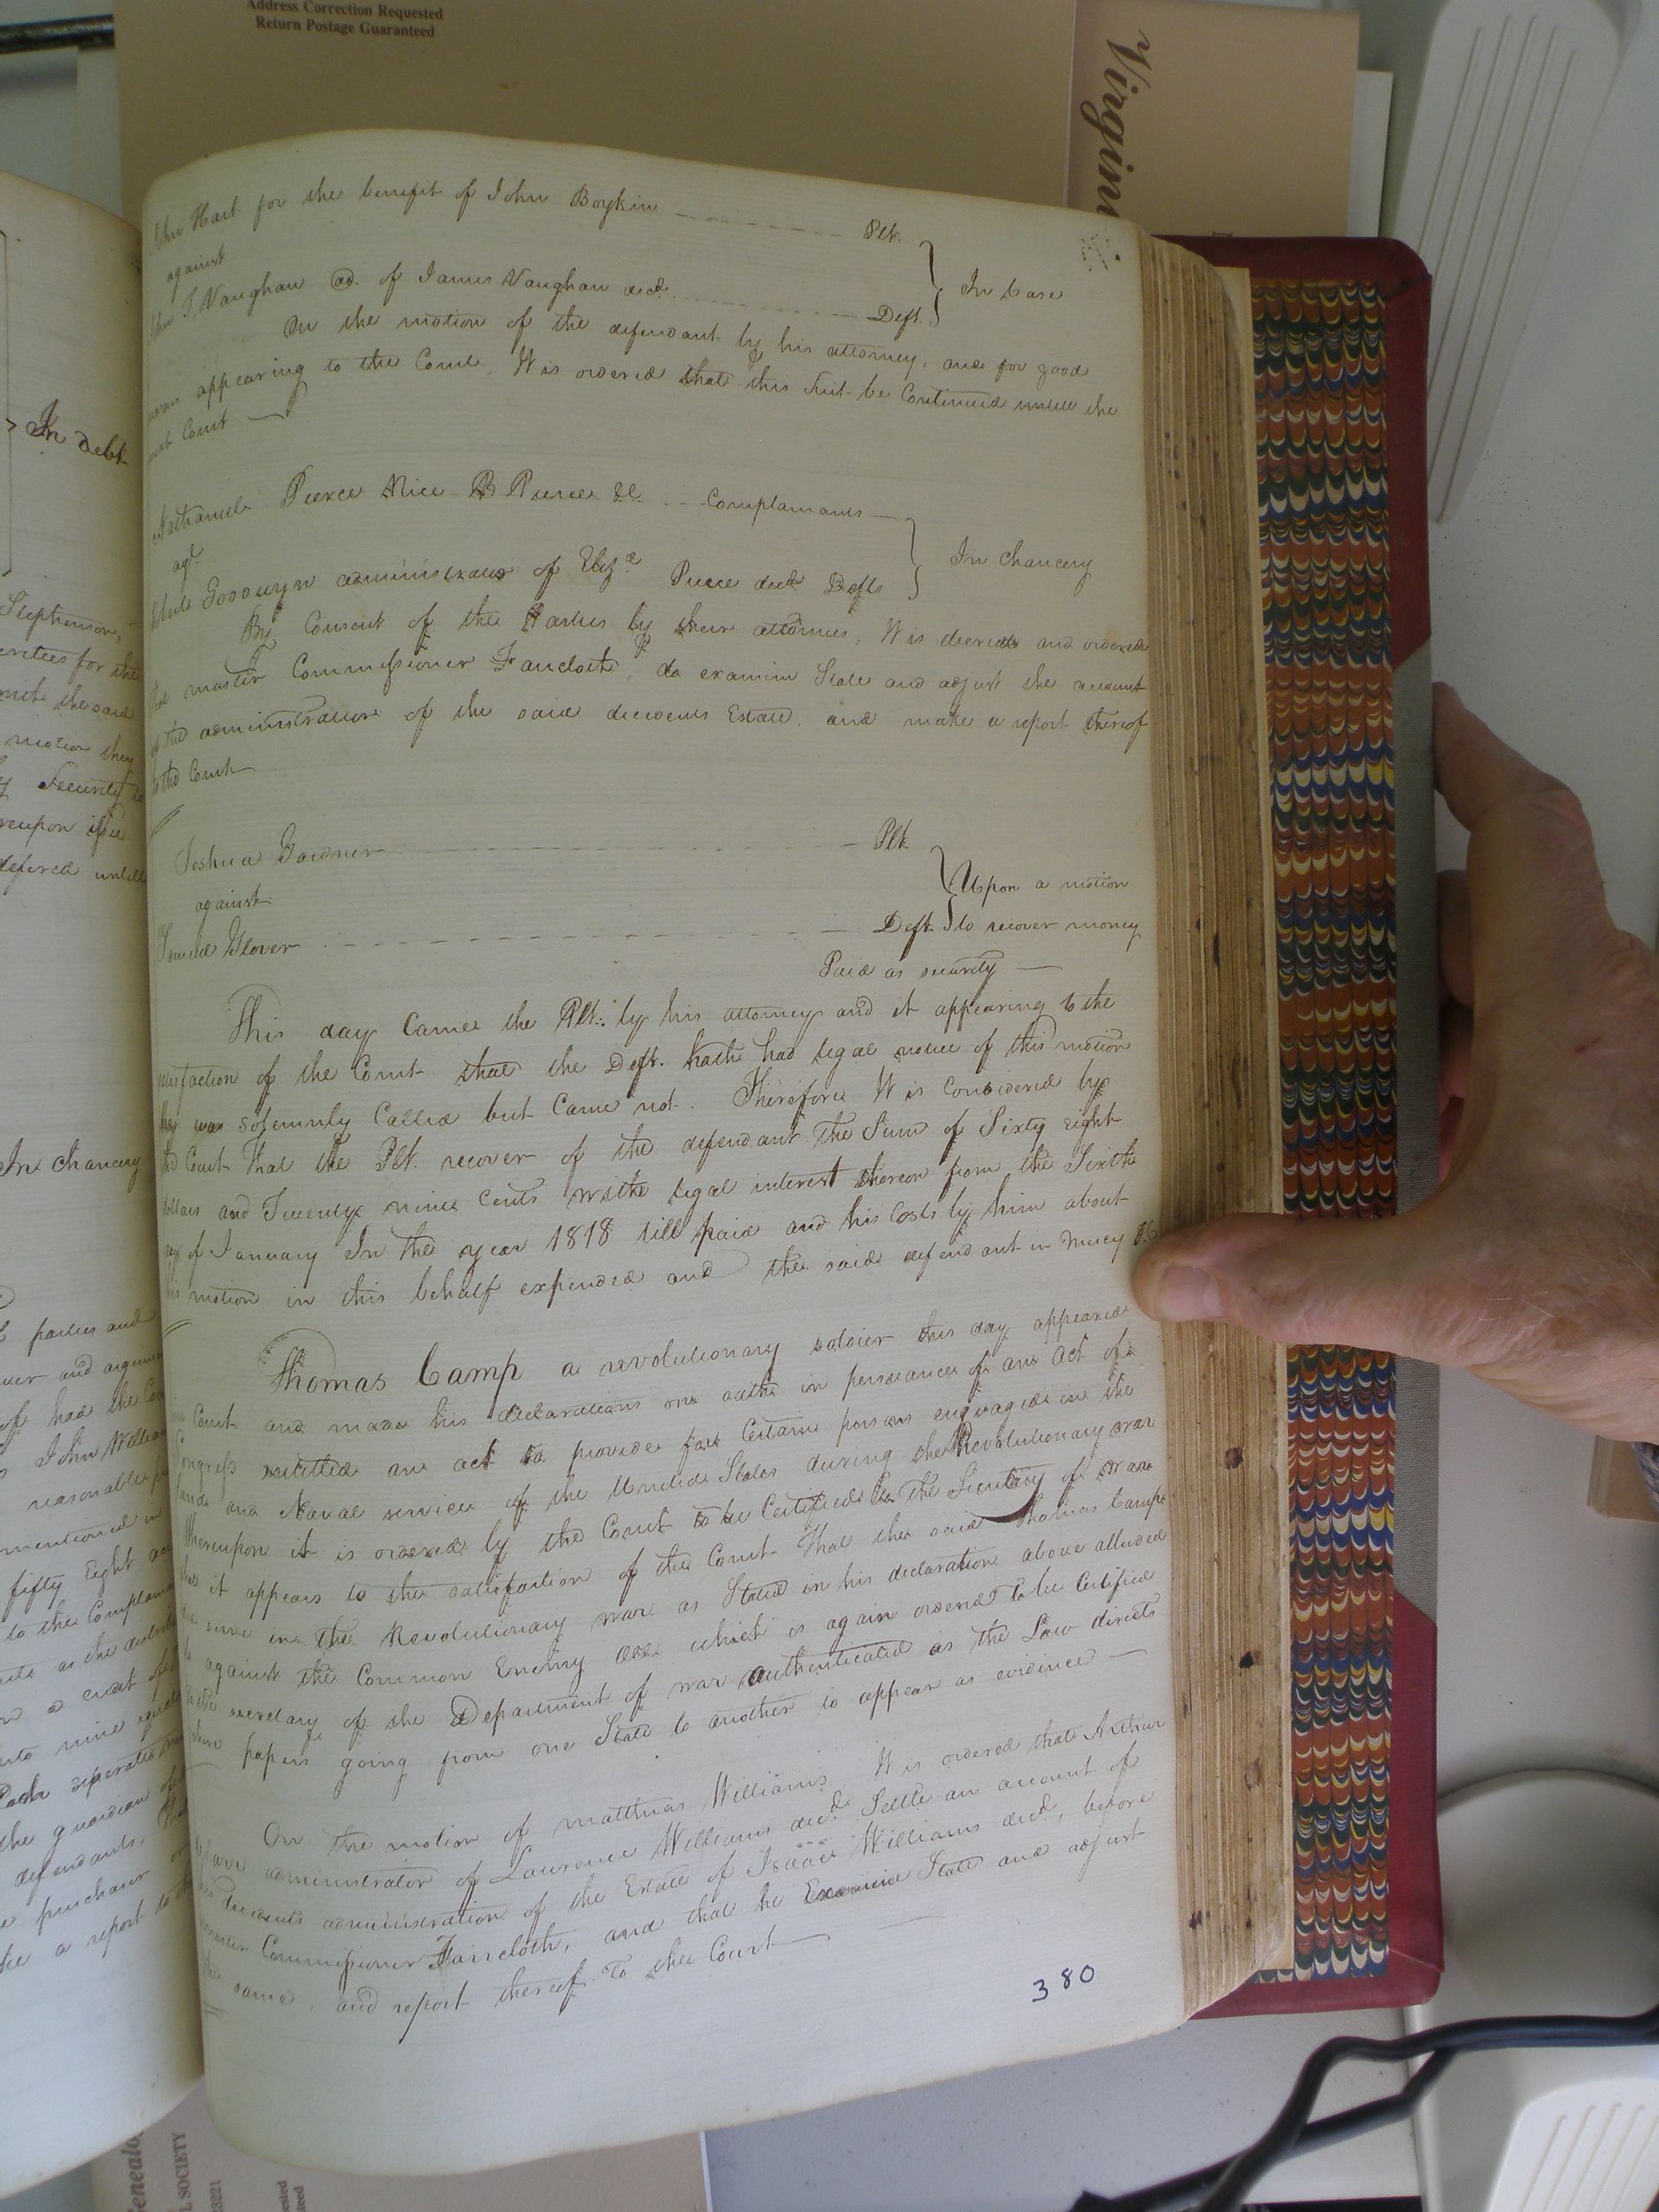 Address Correction Requested
Return Postage Guaranteed
Virgin
Hart for the benefit of John Boykin Plt.
against
Vaughan ad. of James Vaughan decd. Deft.
In Case
On the motion of the defendant by his attorney, and for good
appearing to the Court, It is ordered that this Suit be Continued untill the
next Court
Pierce Complainants
agt.
Goodwyn administrator of Eliza Pierce decd Defts
In Chancery
By Consent of the Parties by their attornies, It is decreed and ordered
that master Commissioner Faircloth, do examine State and adjust the account
of the administration of the said decedents Estate, and make a report thereof
to the Court
Joshua Gardner Plt.
against
Samuel Glover Deft.
Upon a motion
to recover money
Paid as security
This day Came the Plt. by his attorney and it appearing to the
satisfaction of the Court that the Deft. hath had legal notice of this motion
was solemnly Called but Came not. Therefore It is Considered by
the Court that the Plt. recover of the defendant the Sum of Sixty eight
dollars and Twenty nine Cents with legal interest thereon from the Sixth
day of January In the year 1818 till paid and his Costs by him about
his motion in this behalf expended and the said defendant in Mercy &C
Thomas Camp a revolutionary soldier this day appeared
in Court and made his declarations on oath in persuance of an Act of
Congress intitled an act to provide for Certain persons engaged in the
land and Naval service of the United States during the Revolutionary war
Thereupon it is ordered by the Court to be Certified to the Secretary of war
that it appears to the satisfaction of the Court That the said Thomas Camp
did serve in the Revolutionary war as Stated in his declaration above alluded
to against the Common Enemy all which is again ordered to be Certified
to the secretary of the Department of war authenticated as the Law directs
where papers going from one State to another to appear as evidence
On the motion of Matthias Williams It is ordered that Arthur
administrator of Lawrence Williams decd. Settle an account of
his decedents administration of the Estate of Isaac Williams decd, before
master Commissioner Faircloth, and that he Examine State and adjust
the same, and report thereof To the Court
380
In debt
Stephenson,
for the
the said
motion they
Security
defered untill
In Chancery
parties and
had the
John William
reasonable
mentioned in
fifty Eight
to the Complain
as the
into nine equal
the guardian of
defendants,
purchaser
a report to the
Genealo
L SOCIETY
23221